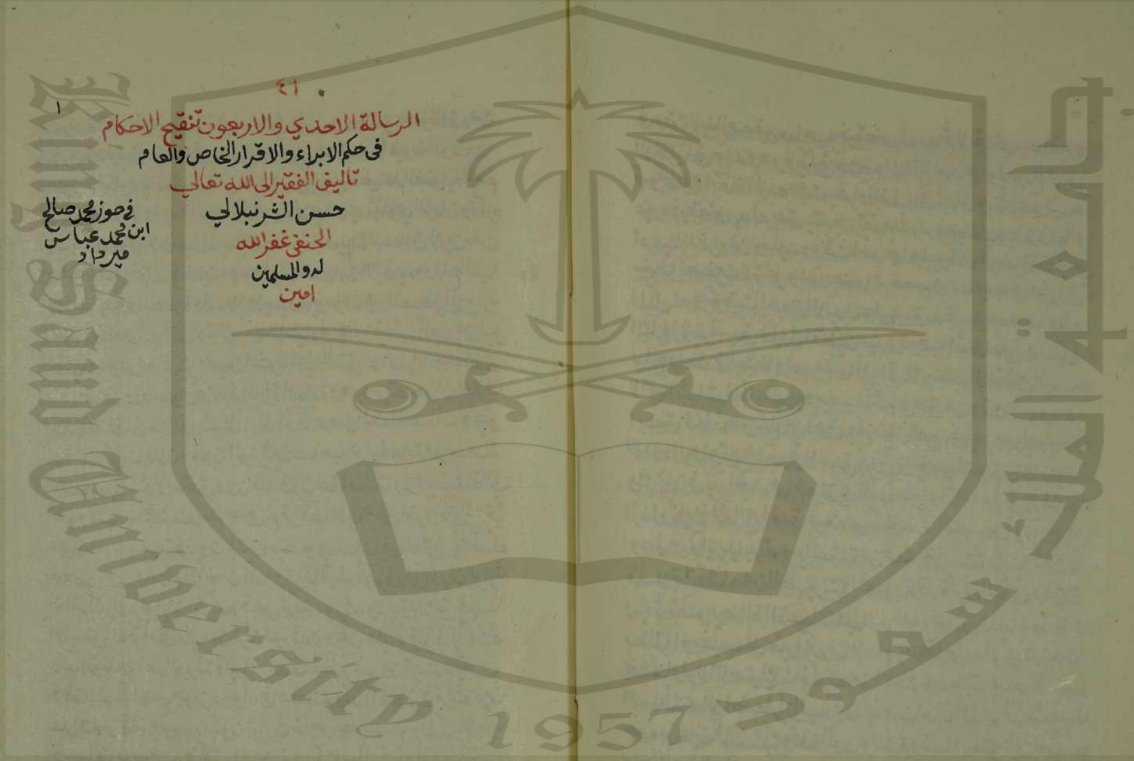 ٤١
الرسالة الاحدي والاربعون تنقيح الاحكام
فى حكم الابراء والاقرار الخاص والعام
تاليف الفقير الى الله تعالى
حسن الشرنبلالي
الحنفى غفر الله
له وللمسلمين
امين
١
فى حوز محمد صالح
ابن محمد عباس
ميرداد
جامعة الملك سعود
King Saud University
1957